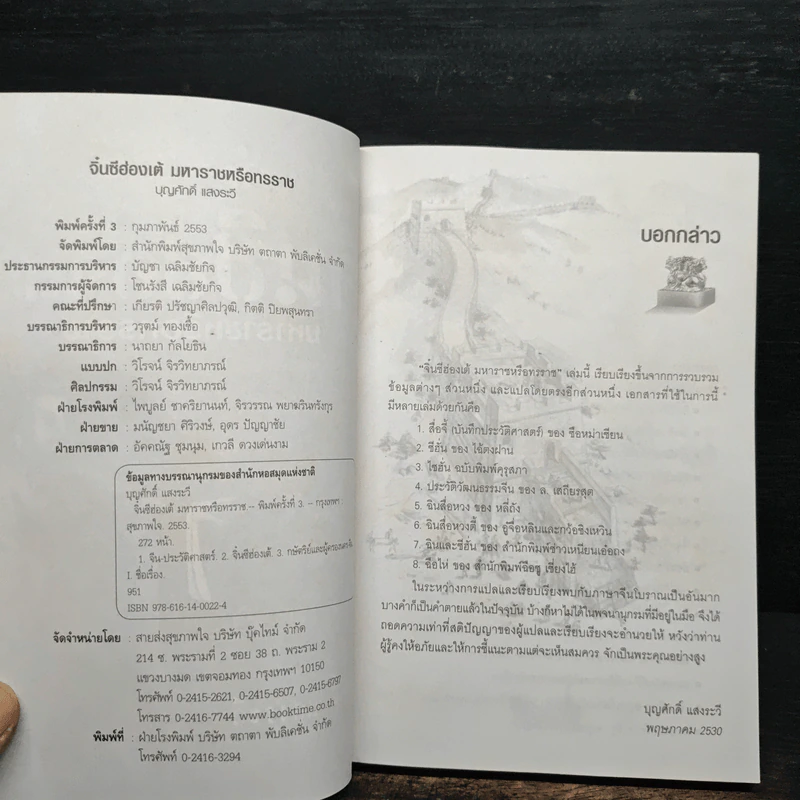 จิ๋นซีฮ่องเต้ มหาราชหรือทรราช
บุญศักดิ์ แสงระวี
พิมพ์ครั้งที่ 3 : กุมภาพันธ์ 2553
จัดพิมพ์โดย : สำนักพิมพ์สุขภาพใจ บริษัท ตถาตา พับลิเคชั่น จำกัด
ประธานกรรมการบริหาร : บัญชา เฉลิมชัยกิจ
กรรมการผู้จัดการ : โชนรังสี เฉลิมชัยกิจ
คณะที่ปรึกษา : เกียรติ ปรัชญาศิลปวุฒิ, กิตติ ปิยพสุนทรา
บรรณาธิการบริหาร : วรุตม์ ทองเชื้อ
บรรณาธิการ : นาถยา กัลโยธิน
แบบปก : วิโรจน์ จิรวิทยาภรณ์
ศิลปกรรม : วิโรจน์ จิรวิทยาภรณ์
ฝ่ายโรงพิมพ์ : ไพบูลย์ ชาคริยานนท์, จิรวรรณ พยาฆรินทรังกูร
ฝ่ายขาย : มนัญชยา ศิริวงษ์, อุดร ปัญญาชัย
ฝ่ายการตลาด : อัคคณัฐ ชุมนุม, เกวลี ดวงเด่นงาม
ข้อมูลทางบรรณานุกรมของสำนักหอสมุดแห่งชาติ
บุญศักดิ์ แสงระวี
จิ๋นซีฮ่องเต้ มหาราชหรือทรราช.-- พิมพ์ครั้งที่ 3. -- กรุงเทพฯ
สุขภาพใจ. 2553.
272 หน้า.
1. จีน-ประวัติศาสตร์. 2. จิ๋นซีฮ่องเต้. 3. กษัตริย์และผู้ครองนคร-จีน
I. ชื่อเรื่อง.
951
ISBN 978-616-14-0022-4
จัดจำหน่ายโดย : สายส่งสุขภาพใจ บริษัท บุ๊คไทม์ จำกัด
214 ซ. พระรามที่ 2 ซอย 38 ถ. พระราม 2
แขวงบางมด เขตจอมทอง กรุงเทพฯ 10150
โทรศัพท์ 0-2415-2621, 0-2415-6507, 0-2415-6797
โทรสาร 0-2416-7744 www.booktime.co.th
พิมพ์ที่ : ฝ่ายโรงพิมพ์ บริษัท ตถาตา พับลิเคชั่น จำกัด
โทรศัพท์ 0-2416-3294
บอกกล่าว
"จิ๋นซีฮ่องเต้ มหาราชหรือทรราช" เล่มนี้ เรียบเรียงขึ้นจากการรวบรวม
ข้อมูลต่างๆ ส่วนหนึ่ง และแปลโดยตรงอีกส่วนหนึ่ง เอกสารที่ใช้ในการนี้
มีหลายเล่มด้วยกันคือ
1. สื่อจี้ (บันทึกประวัติศาสตร์) ของ ซือหม่าเชียน
2. ซีฮั่น ของ ไช้ตงฝาน
3. ไซฮั่น ฉบับพิมพ์คุรุสภา
4. ประวัติวัฒนธรรมจีน ของ ล. เสถียรสุต
5. ฉินสื่อหวง ของ หลี่ถัง
6. ฉินสื่อหวงตี้ ของ อู๋จื่อหลินและกว้อซิงเหวิน
7. ฉินและซีฮั่น ของ สำนักพิมพ์ซ้าวเหนียนเอ๋อถง
8. ฉือไห่ ของ สำนักพิมพ์ฉือซู เซี่ยงไฮ้
ในระหว่างการแปลและเรียบเรียงพบกับภาษาจีนโบราณเป็นอันมาก
บางคำก็เป็นคำตายแล้วในปัจจุบัน บ้างก็หาไม่ได้ในพจนานุกรมที่มีอยู่ในมือ จึงได้
ถอดความเท่าที่สติปัญญาของผู้แปลและเรียบเรียงจะอำนวยให้ หวังว่าท่าน
ผู้รู้คงให้อภัยและให้การชี้แนะตามแต่จะเห็นสมควร จักเป็นพระคุณอย่างสูง
บุญศักดิ์ แสงระวี
พฤษภาคม 2530